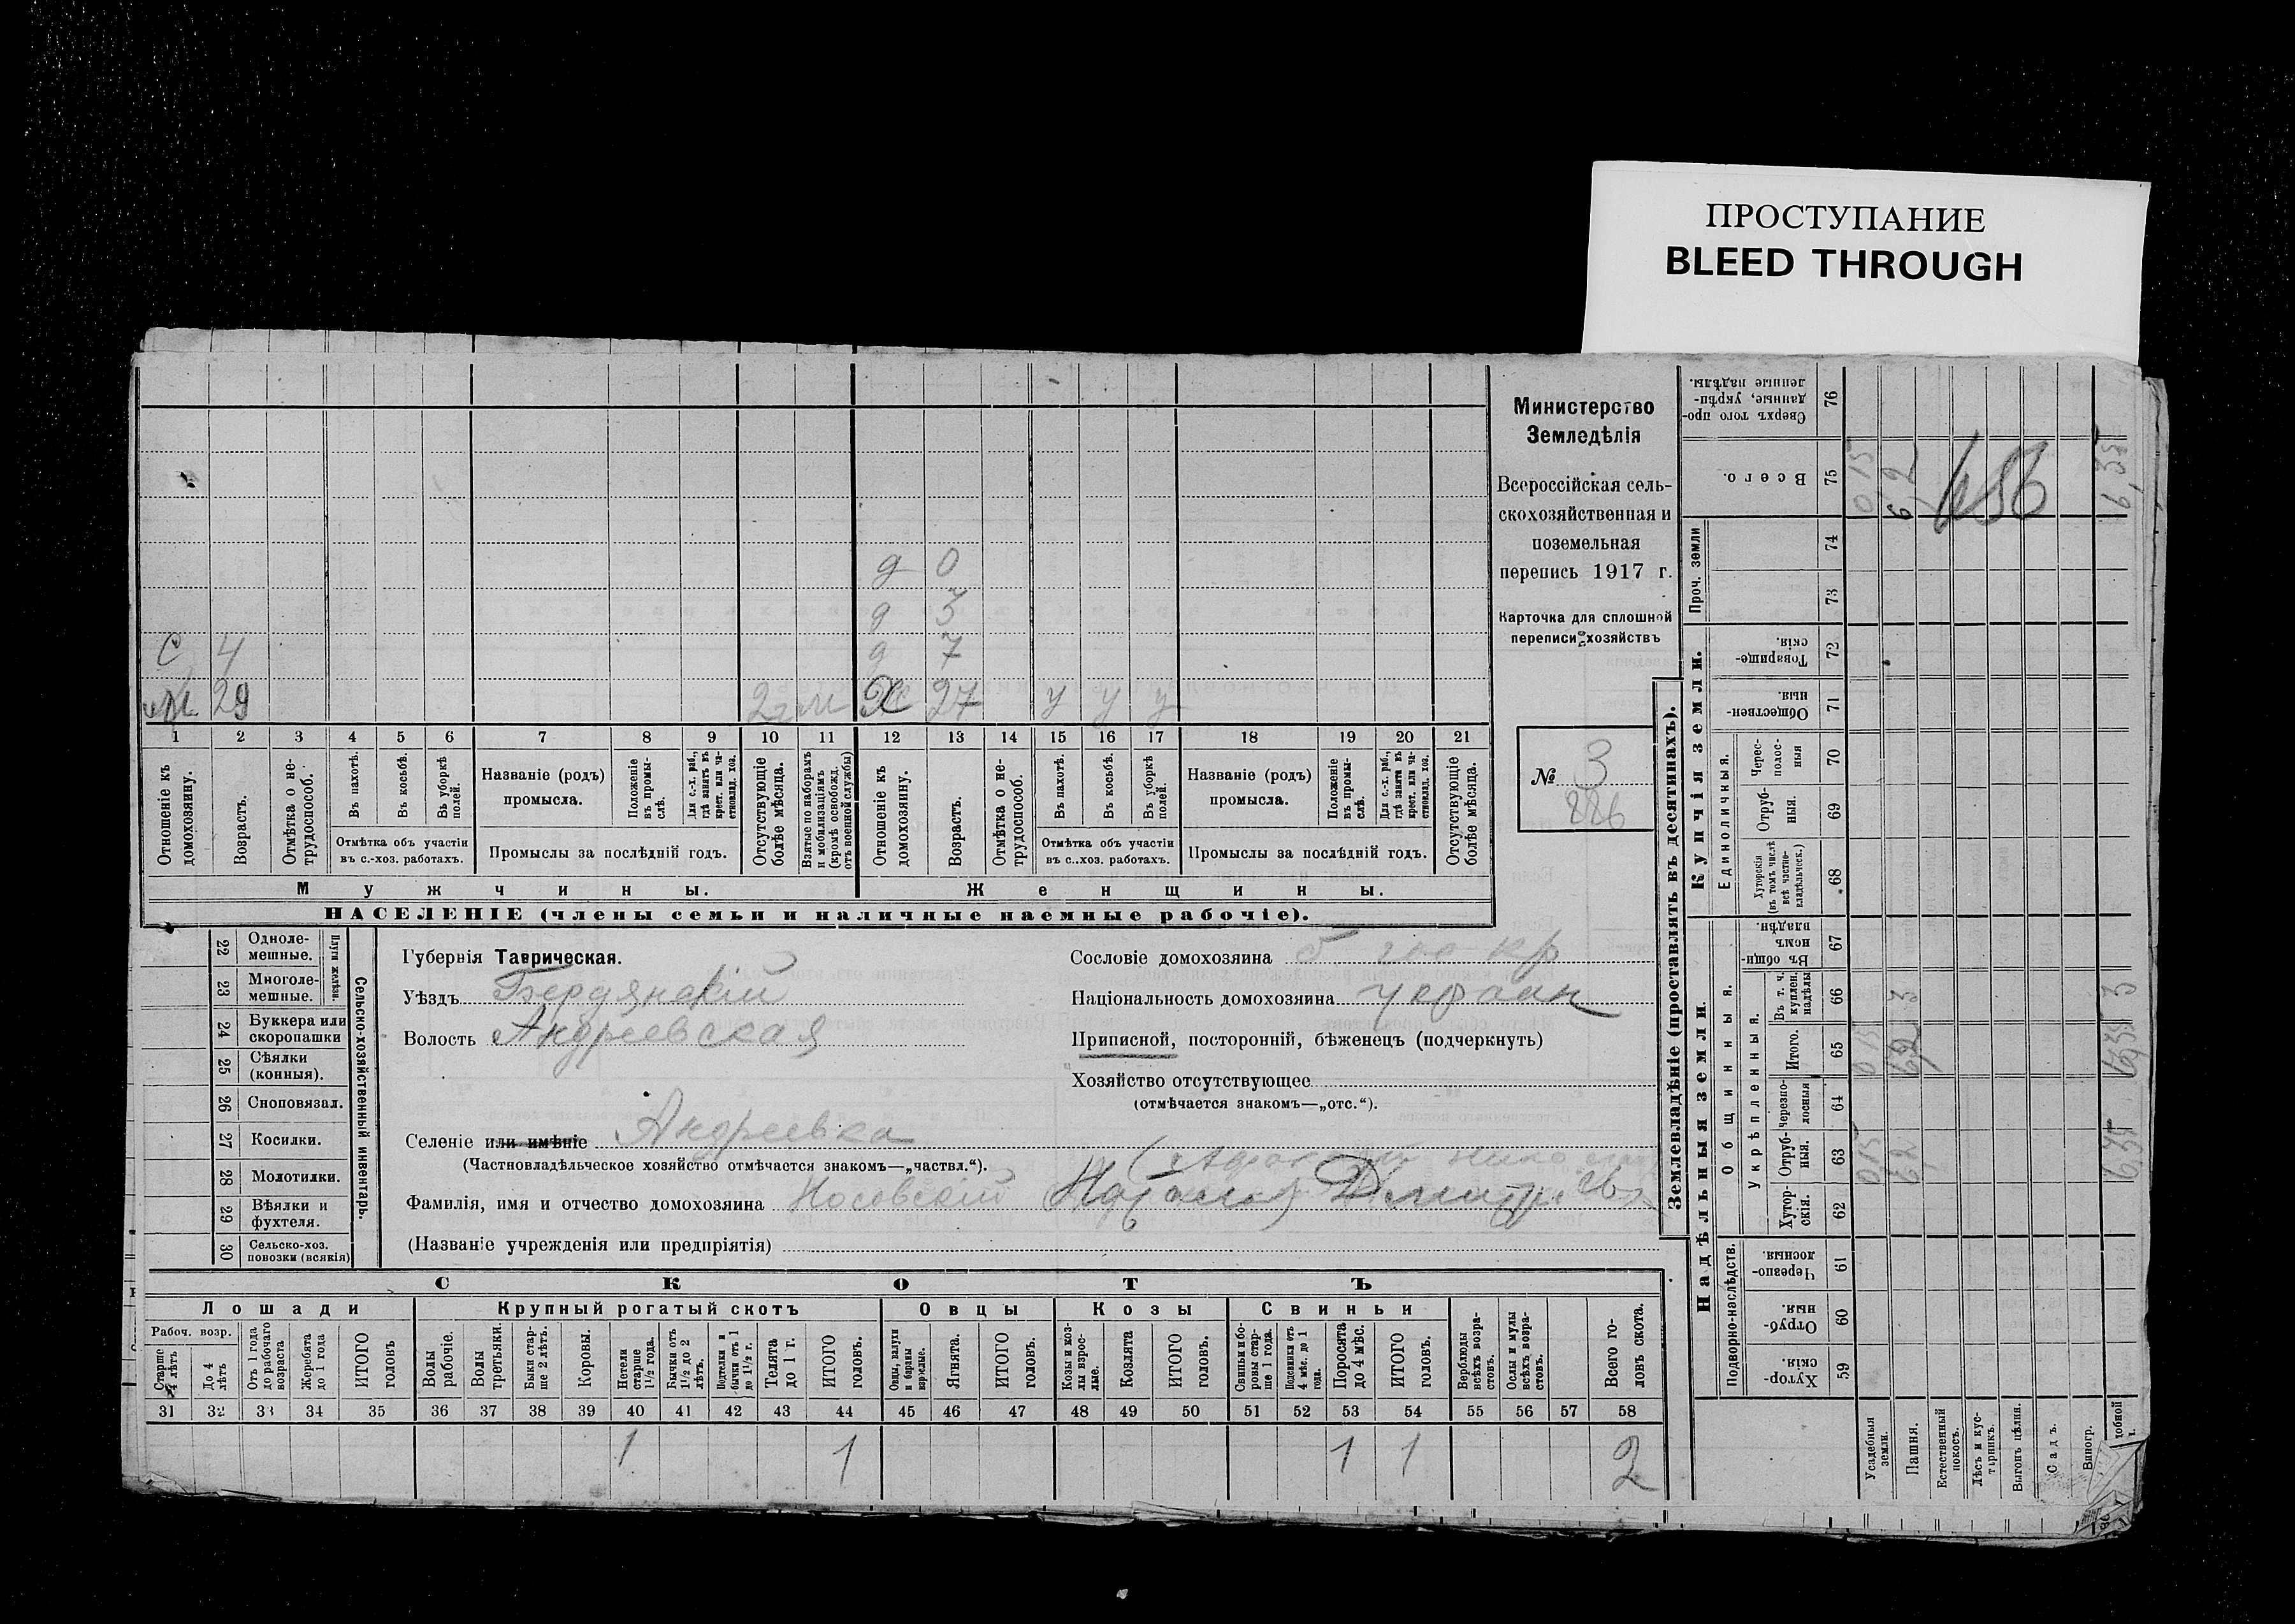 ПРОСТУПАНИЕ
BLEED THROUGH
Министерство
Земледѣлія
Всероссійская сель-
скохозяйственная и
поземельная
перепись 1917 г.
Карточка для сплошной
переписи хозяйствъ
№ 3
886
д 0
д 3
с 4 д 7
29 Ж 27 у у у
1 2 3 4 5 6 7 8 9 10 11 12 13 14 15 16 17 18 19 20 21
Отношеніе къ домохозяину.
Возрастъ.
Отмѣтка о не-трудоспособ.
Въ пахотѣ.
Въ косьбѣ.
Въ уборкѣ полей.
Отмѣтка объ участіи
въ с.-хоз. работахъ.
Названіе (родъ)
промысла.
Положеніе въ промы-слѣ.
Для с.-х. раб., гдѣ занятъ въ крест. или ча-стновлад. хоз.
Промыслы за послѣдній годъ.
Отсутствующіе болѣе мѣсяца.
Взятые по наборамъ и мобилизаціямъ (кромѣ освобожд. отъ военной службы)
Отношеніе къ домохозяину.
Возрастъ.
Отмѣтка о не-трудоспособ.
Въ пахотѣ.
Въ косьбѣ.
Въ уборкѣ полей.
Отмѣтка объ участіи
въ с..хоз. работахъ.
Названіе (родъ)
промысла.
Положеніе въ промы-слѣ.
Для с.-х. раб., гдѣ занятъ въ крест. или ча-стновлад. хоз.
Промыслы за послѣдній годъ.
Отсутствующіе болѣе мѣсяца.
Мужчины. Женщины.
НАСЕЛЕНІЕ (члены семьи и наличные наемные рабочіе).
Сельско-хозяйственный инвентарь.
Плуги желѣзн.
22 Одноле-мешные.
23 Многоле-мешные.
24 Буккера или скоропашки
25 Сѣялки (конныя).
26 Сноповязал.
27 Косилки.
28 Молотилки.
29 Вѣялки и фухтеля.
30 Сельско-хоз. повозки (всякія)
Губернія Таврическая.
Уѣздъ Бердянскій
Волость Андреевская
Селеніе или имѣніе Андреевка
(Частновладѣльческое хозяйство отмѣчается знакомъ—„частвл.“).
Фамилія, имя и отчество домохозяина Носовскій
(Названіе учрежденія или предпріятія)
Сословіе домохозяина кр
Національность домохозяина
Приписной, посторонній, бѣженецъ (подчеркнуть)
Хозяйство отсутствующее
(отмѣчается знакомъ—„отс.“).
СКОТЪ
Лошади Крупный рогатый скотъ Овцы Козы Свиньи
Рабоч. возр.
Старше 4 лѣтъ
До 4 лѣтъ
Отъ 1 года до рабочаго возраста
Жеребята до 1 года
ИТОГО головъ
Волы рабочіе.
Волы третьяки.
Быки стар-ше 2 лѣтъ.
Коровы.
Нетели старше 1½ года.
Бычки отъ 1½ до 2 лѣтъ.
Подтелки и бычки отъ 1 до 1½ г.
Телята до 1 г.
ИТОГО головъ.
Овцы, валухи и бараны взрослые.
Ягнята.
ИТОГО головъ.
Козы и коз-лы взрос-лые.
Козлята
ИТОГО головъ.
Свиньи и бо-ровы стар-ше 1 года.
Подсвинки отъ 4 мѣс. до 1 года.
Поросята до 4 мѣс.
ИТОГО головъ.
Верблюды всѣхъ возра-стовъ.
Ослы и мулы всѣхъ возра-стовъ.
Всего го-ловъ скота.
31 32 33 34 35 36 37 38 39 40 41 42 43 44 45 46 47 48 49 50 51 52 53 54 55 56 57 58
1 1 1 1 2
Землевладѣніе (проставлять въ десятинахъ).
Надѣльныя земли. Купчія земли. Проч. земли
Подворно-наслѣдств.
Общинныя.
Укрѣпленныя.
Единоличныя.
59 Хутор-скія.
60 Отруб-ныя.
61 Черезпо-лосныя
62 Хутор-скія.
63 Отруб-ныя.
64 Черезпо-лосныя
65 Итого.
66 Въ т. ч. куплен. надѣлы
67 Въ общин-номъ владѣн.
68 Хуторскія (въ томъ числѣ всѣ частно-владѣльческ.)
69 Отруб-ныя.
70 Черес-полос-ныя
71 Обществен-ныя.
72 Товарище-скія.
73
74
75 Всего.
76 Сверхъ того про-данные, укрѣп-ленные надѣлы.
Усадебныя земли.
Пашня.
Естественный покосъ.
Лѣсъ и кус-тарникъ.
Выгонъ цѣлин.
Садъ.
Виногр.
0 15
6,2
6,35
3
456